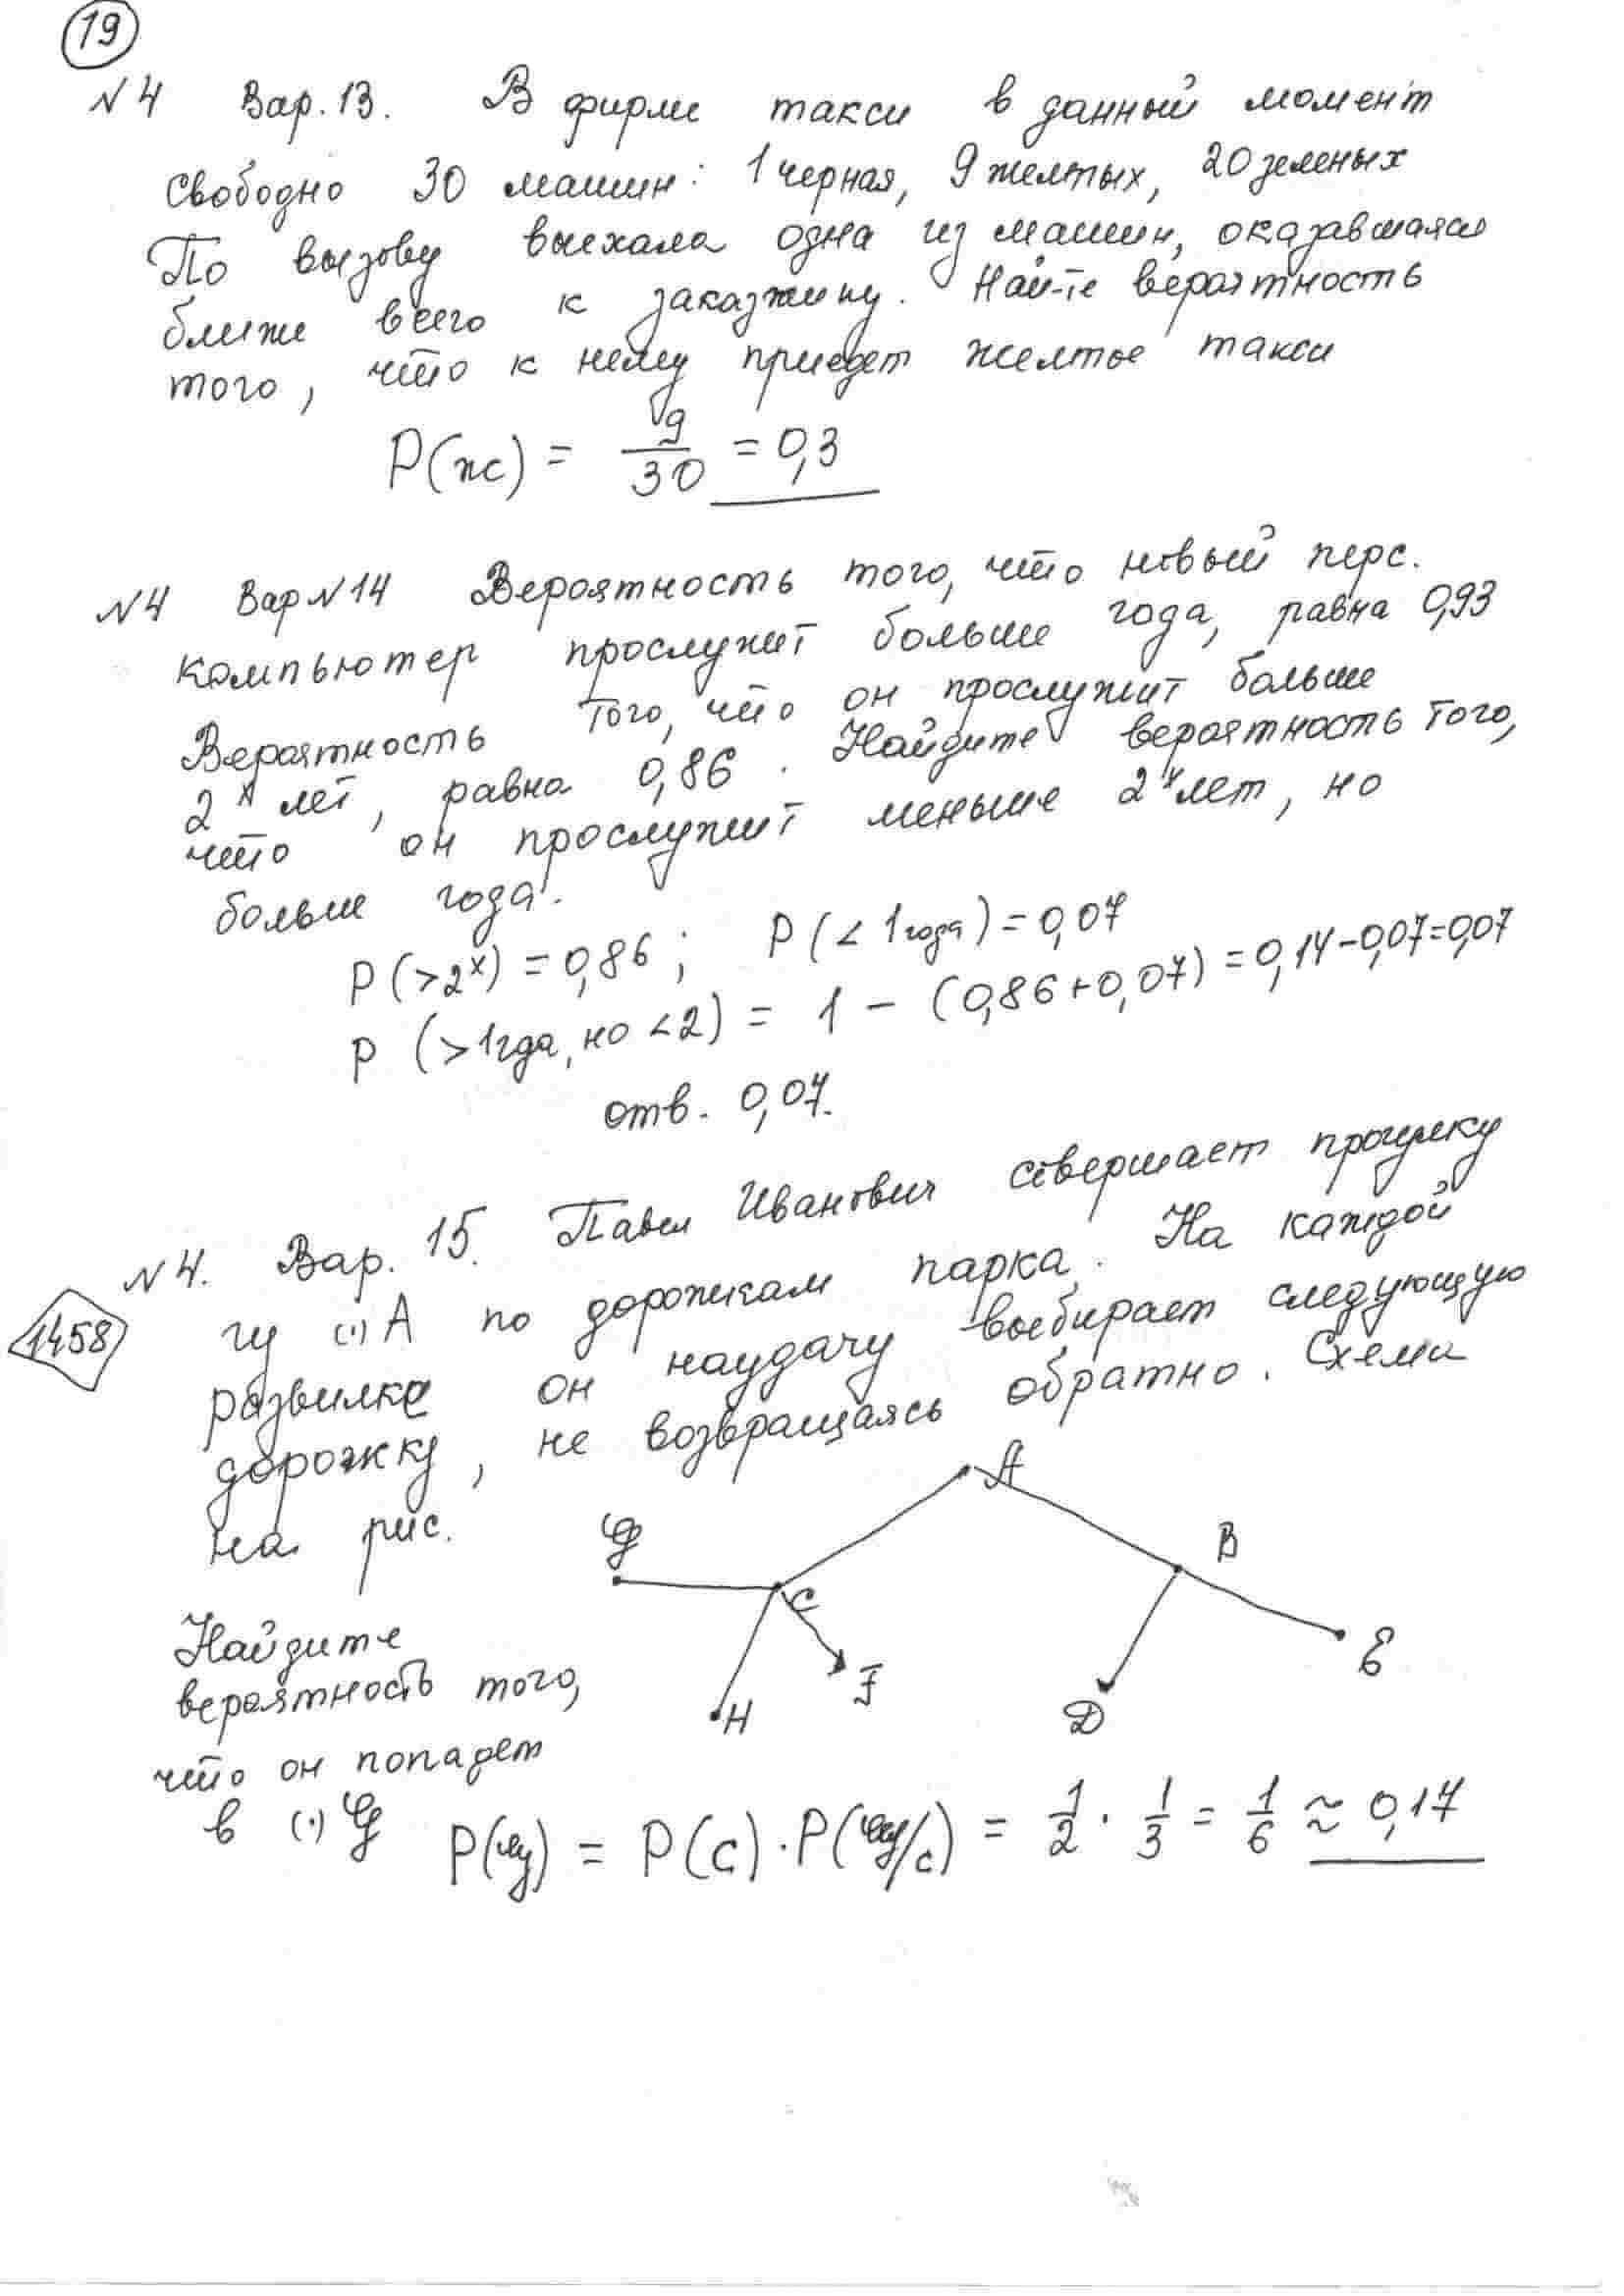 19
№4 Вар. 13. В фирме такси в данный момент
свободно 30 машин: 1 черная, 9 желтых, 20 зеленых
По вызову выехала одна из машин, оказавшаяся
ближе всего к заказчику. Най-те вероятность
того, что к нему приедет желтое такси
P(ж) = 9/30 = 0,3
№4 Вар №14 Вероятность того, что новый перс.
компьютер прослужит больше года, равна 0,93
Вероятность того, что он прослужит больше
2х лет, равна 0,86. Найдите вероятность того,
что он прослужит меньше 2х лет, но
больше года.
P(>2х) = 0,86; P(<1 года) = 0,07
P(>1 гда, но <2) = 1 - (0,86+0,07) = 0,14-0,07=0,07
отв. 0,07.
№4. Вар. 15. Павел Иванович совершает прогулку
1458
из (·) A по дорожкам парка. На каждой
развилке он наудачу выбирает следующую
дорожку, не возвращаясь обратно. Схема
на рис.
A
G
C
B
H
F
D
E
Найдите
вероятность того,
что он попадет
в (·) G
P(G) = P(C) · P(G/C) = 1/2 · 1/3 = 1/6 ≈ 0,17